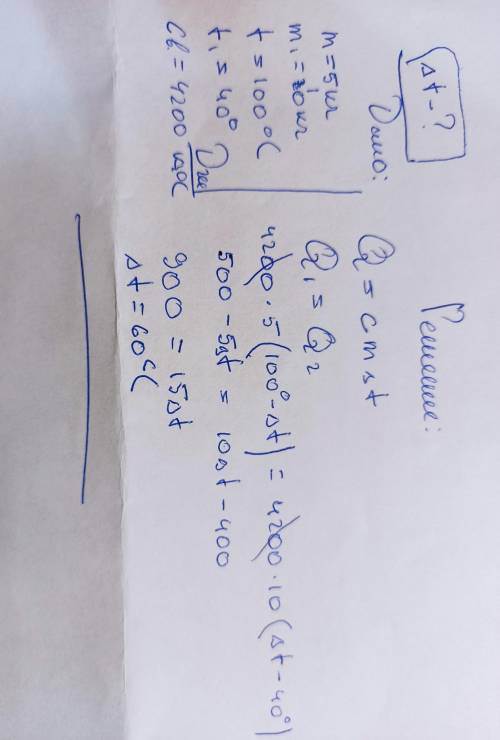 Дано:
m = 5 кг
m₁ = 10 кг
t = 100°C
t₁ = 40°
Cв = 4200 Дж/кг°C
Δt - ?
Решение:
Q = cmΔt
Q₁ = Q₂
4200 · 5 (100° - Δt) = 4200 · 10 (Δt - 40°)
500 - 5Δt = 10Δt - 400
900 = 15Δt
Δt = 60°C